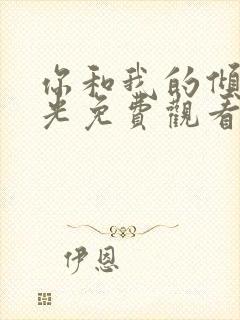 你和我的傾
光免費觀看
伊恩